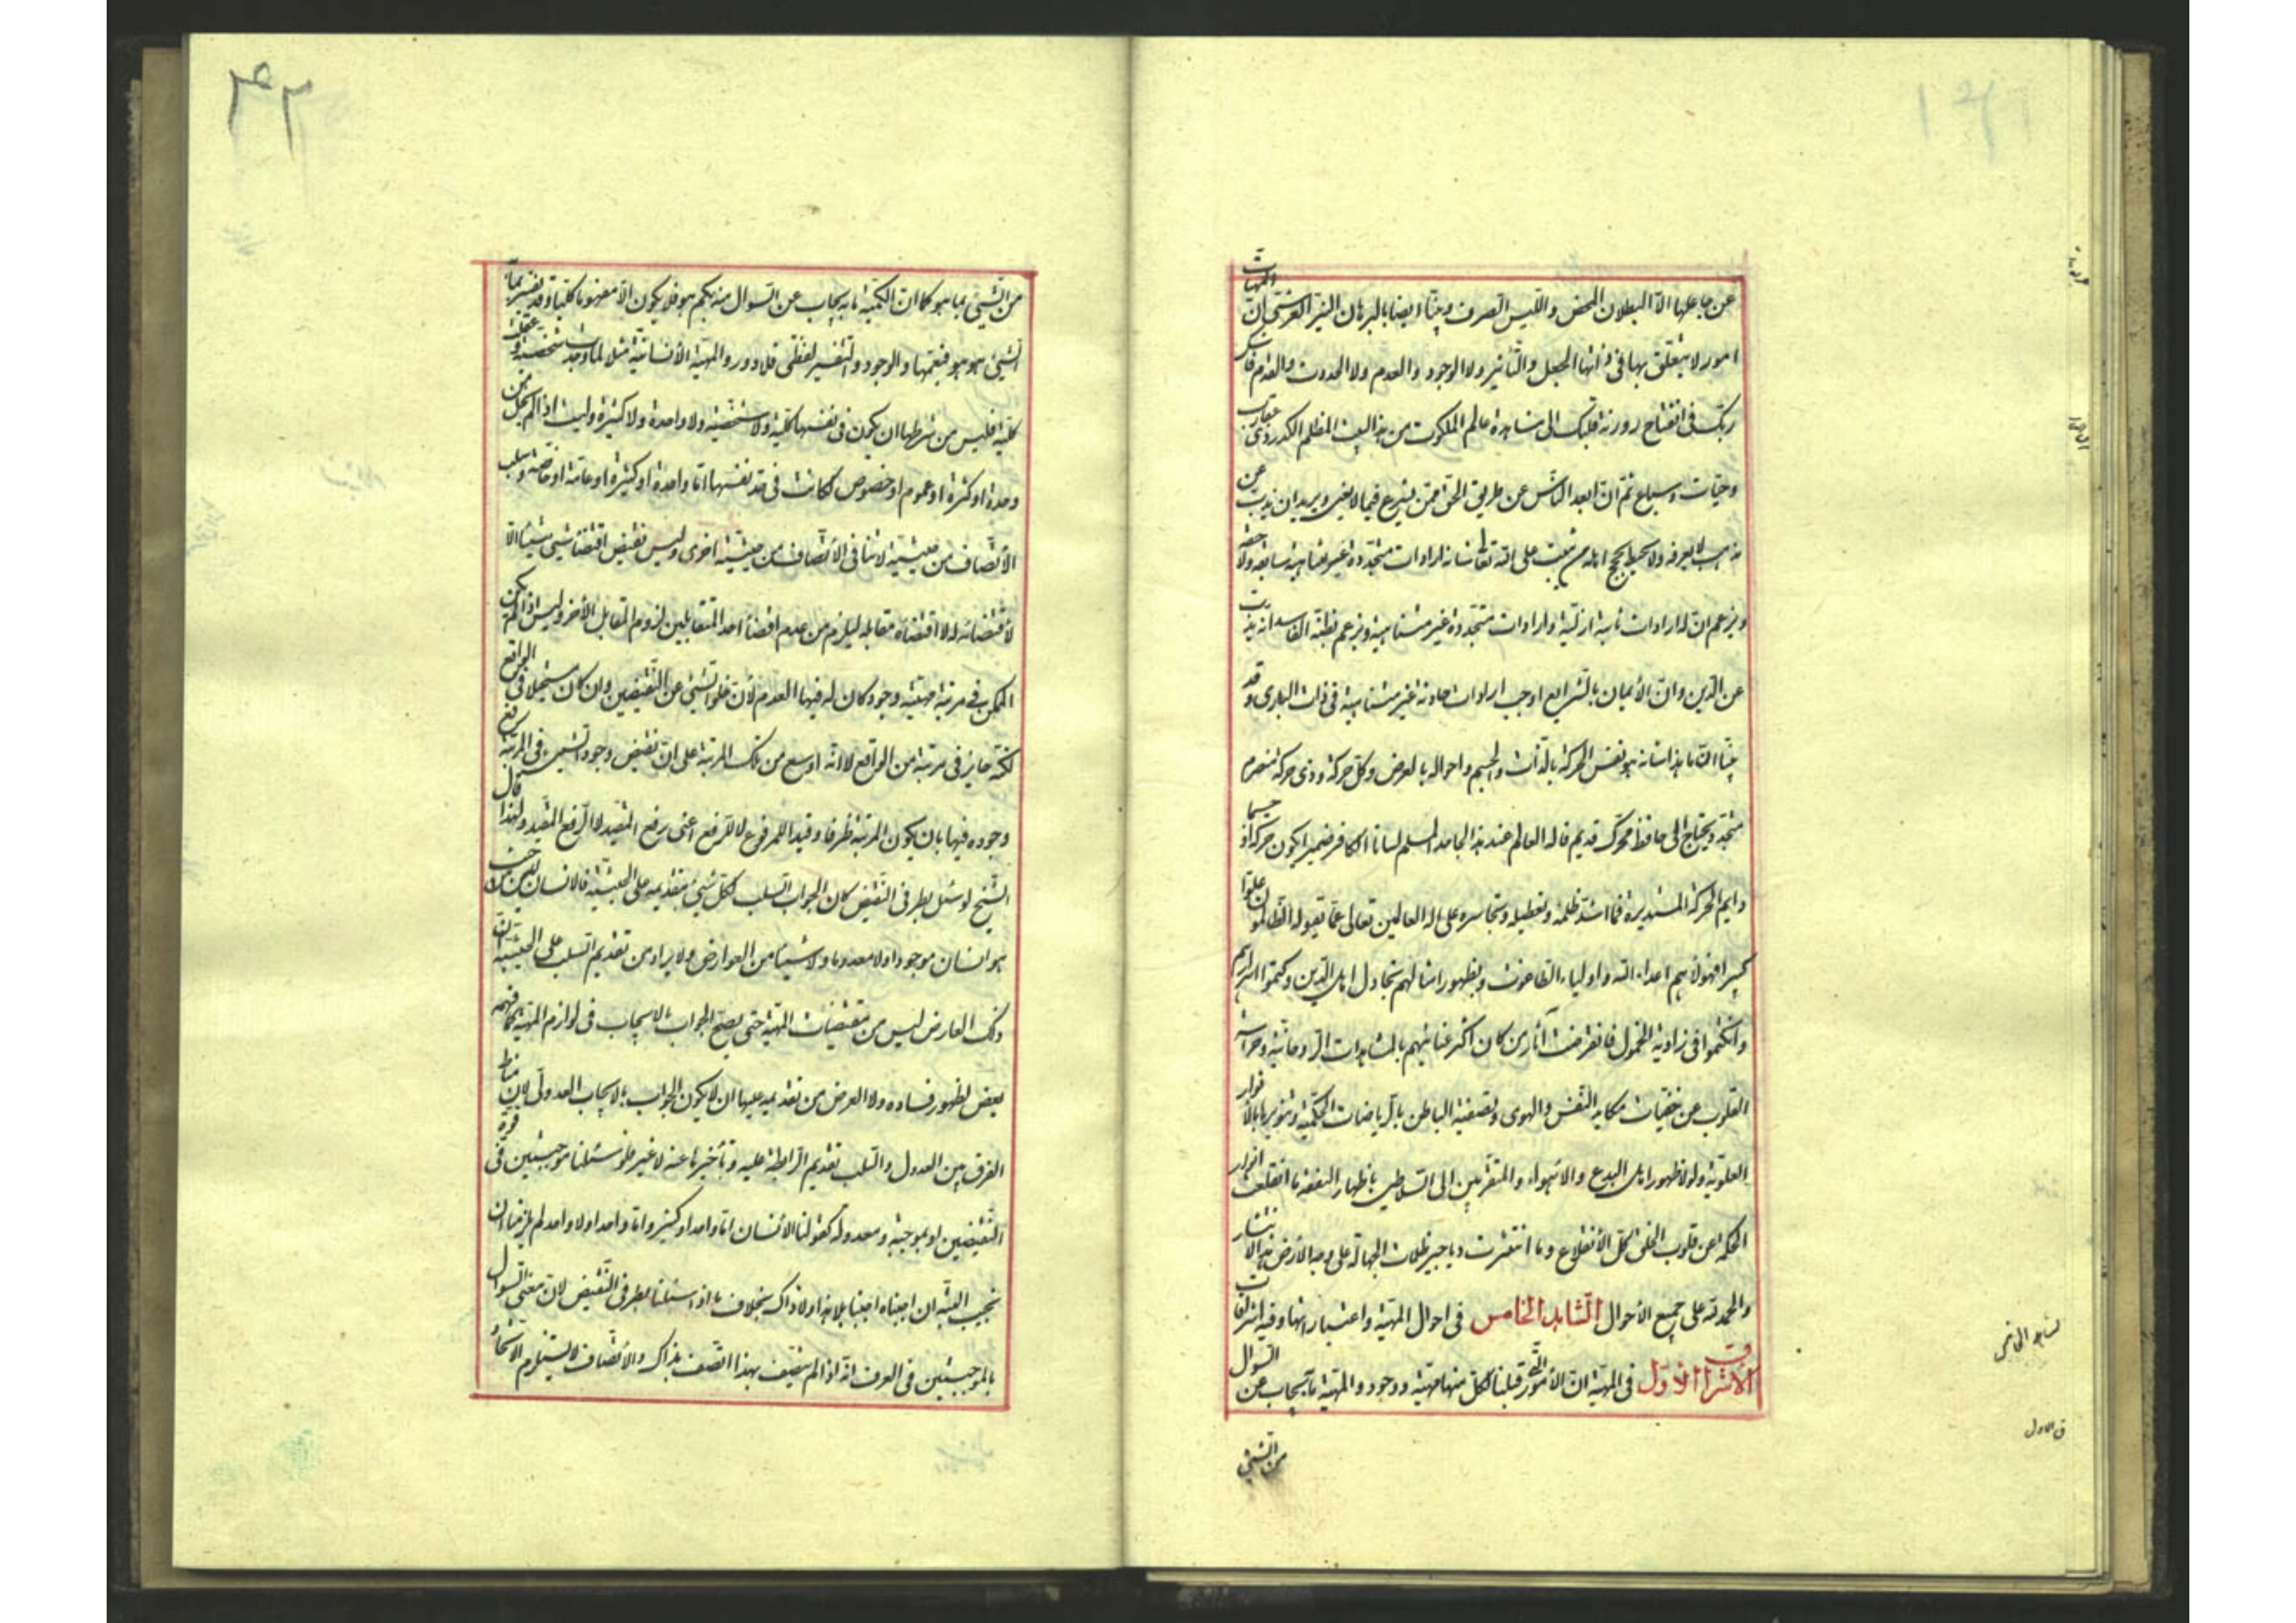 عن جاعلها الا البطلان المحض والليس الصرف وبينا ايضا بالبرهان النير العرشى ان المهيات
امور لا يتعلق بها فى ذاتها الجعل والتأثير ولا الوجود والعدم ولا الحدوث والقدم فاشكر
ربك فى انفتاح روزنة قلبك الى مشاهدة عالم الملكوت من هذا البيت المظلم الكدر ذى عقارب
وحيات وسباع ثم ان ابعد الناس عن طريق الحق من يشرع فيما لا يعنى ويريد ان يذب عن
مذهب لا يعرفه ولا يحيط بحجج اهله من يثبت على الله تعالى شانه ارادات متجددة غير متناهية سابقة ولاحقة
ويزعم ان له ارادات ثابتة ازلية وارادات متجددة غير متناهية ويزعم بظنه الفاسد انه يذب
عن الدين وان الايمان بالشرايع اوجب ارادات حادثة غير متناهية فى ذات البارى وقد
بينا ان ما هذا شانه هو نفس الحركة بالذات والجسم واحواله بالعرض وكل حركة وذى حركة منصرم
متجدد يحتاج الى حافظ محرك قديم فاله العالم عند هذا الجاحد المسلم لسانا الكافر ضميرا يكون حركة او جسما
دايم الحركة المستديرة فما اشد ظلمه وتعطيله وتجاسره على اله العالمين تعالى عما يقوله الظالمون علوا
كبيرا فهؤلاء هم اعداء الله واولياء الطاغوت وبظهور امثالهم تجادل اهل الدين وكتموا اسرارهم
وانكتموا فى زاوية الخمول فانقرضت آثار من كان اكثر عنايتهم بالمشاهدات الروحانية وحراسة
القلوب عن خفيات مكايد النفس والهوى وتصفية الباطن بالرياضات الحكمية وتنويرها بالانوار
العلوية ولولا ظهور اهل البدع والاهواء والمتقربين الى السلاطين باظهار التفقه ما انقلعت انوار
الحكمة عن قلوب الخلق كل الانقلاع وما انتشرت دياجير ظلمات الجهالة على وجه الارض هذا الانتشار
والحمد لله على جميع الاحوال الشاهد الخامس فى احوال المهية واعتباراتها وفيه اشراقات
الاشراق الاول فى المهية ان الامور التى قبلنا لكل منها مهية ووجود والمهية ما يجاب عن السوال
من الشئ
من الشئ بما هو كما ان الكمية ما به يجاب عن السوال منه بكم هو فلا يكون الا مفهوما كليا وقد تفسر بما به
الشئ هو هو فيعمها والوجود والتفسير لفظى فلا دور والمهية الانسانية مثلا لما وجدت شخصية وعقلت
كلية فليس من شرطها ان يكون فى نفسها كلية ولا شخصية ولا واحدة ولا كثيرة وليست اذا لم يخل من
وحدة او كثرة او عموم او خصوص كانت فى حد نفسها اما واحدة او كثيرة او عامة او خاصة وسلب
الاتصاف من حيثية لا تنافى الاتصاف من حيثية اخرى وليس نقيض اقتضاء شئ شيئا الا
لا اقتضائه له لا اقتضاءه مقابله ليلزم من عدم اقتضاء احد المتقابلين لزوم المقابل الآخر وليس اذا لم يكن
للممكن فى مرتبة مهيته وجود كان له فيها العدم لان خلو الشئ عن النقيضين وان كان مستحيلا فى الواقع
لكنه جايز فى مرتبة من الواقع لانه اوسع من تلك المرتبة على ان نقيض وجود الشئ فى المرتبة رفع
وجوده فيها بان يكون المرتبة ظرفا وقيدا للمرفوع لا للرفع اعنى رفع المقيد لا الرفع المقيد ولهذا قال
الشيخ لو سئل بطرفى النقيض كان الجواب السلب لكل شئ بتقديمه على الحيثية فالانسان ليس من حيث
هو انسان موجودا ولا معدوما ولا شيئا من العوارض ولا يراد من تقديم السلب على الحيثية ان
ذلك العارض ليس من مقتضيات المهية حتى يصح الجواب بالايجاب فى لوازم المهية كما فهمه
بعض لظهور فساده ولا الغرض من تقديمه عليها ان لا يكون الجواب بالايجاب العدولى لان مناط
الفرق بين العدول والسلب تقديم الرابطة عليه وتأخيرها عنه لا غير فلو سئلنا موجبتين فى قوة
النقيضين او بموجبة ومعدولة كقولنا الانسان اما واحد او كثير واما واحد او لا واحد لم يلزمنا ان
نجيب البتة وان اجبناه اجبنا بلا هذا ولا ذاك بخلاف ما اذا سئلنا بطرفى النقيض لان معنى السوال
بالموجبتين فى العرف انه اذا لم يتصف بهذا اتصف بذاك والاتصاف لا يستلزم الاتحاد